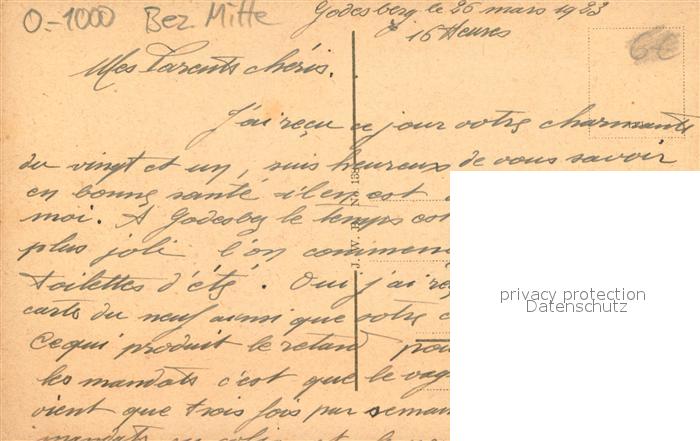 O=1000 Bez Mitte
Godesberg le 26 mars 1923
16 Heures
6€
Mes Parents chéris.
J'ai reçu ce jour votre charmante
du vingt et un, suis heureux de vous savoir
en bonne santé il en est
moi. A Godesberg le temps est
plus joli l'on commen
toilettes d'été. Oui j'ai re
carte du neuf ainsi que votre c
Ce qui produit le retard pou
les mandats c'est que le vag
vient que trois fois par semai
mandats
J. W. B. No. 138
privacy protection
Datenschutz